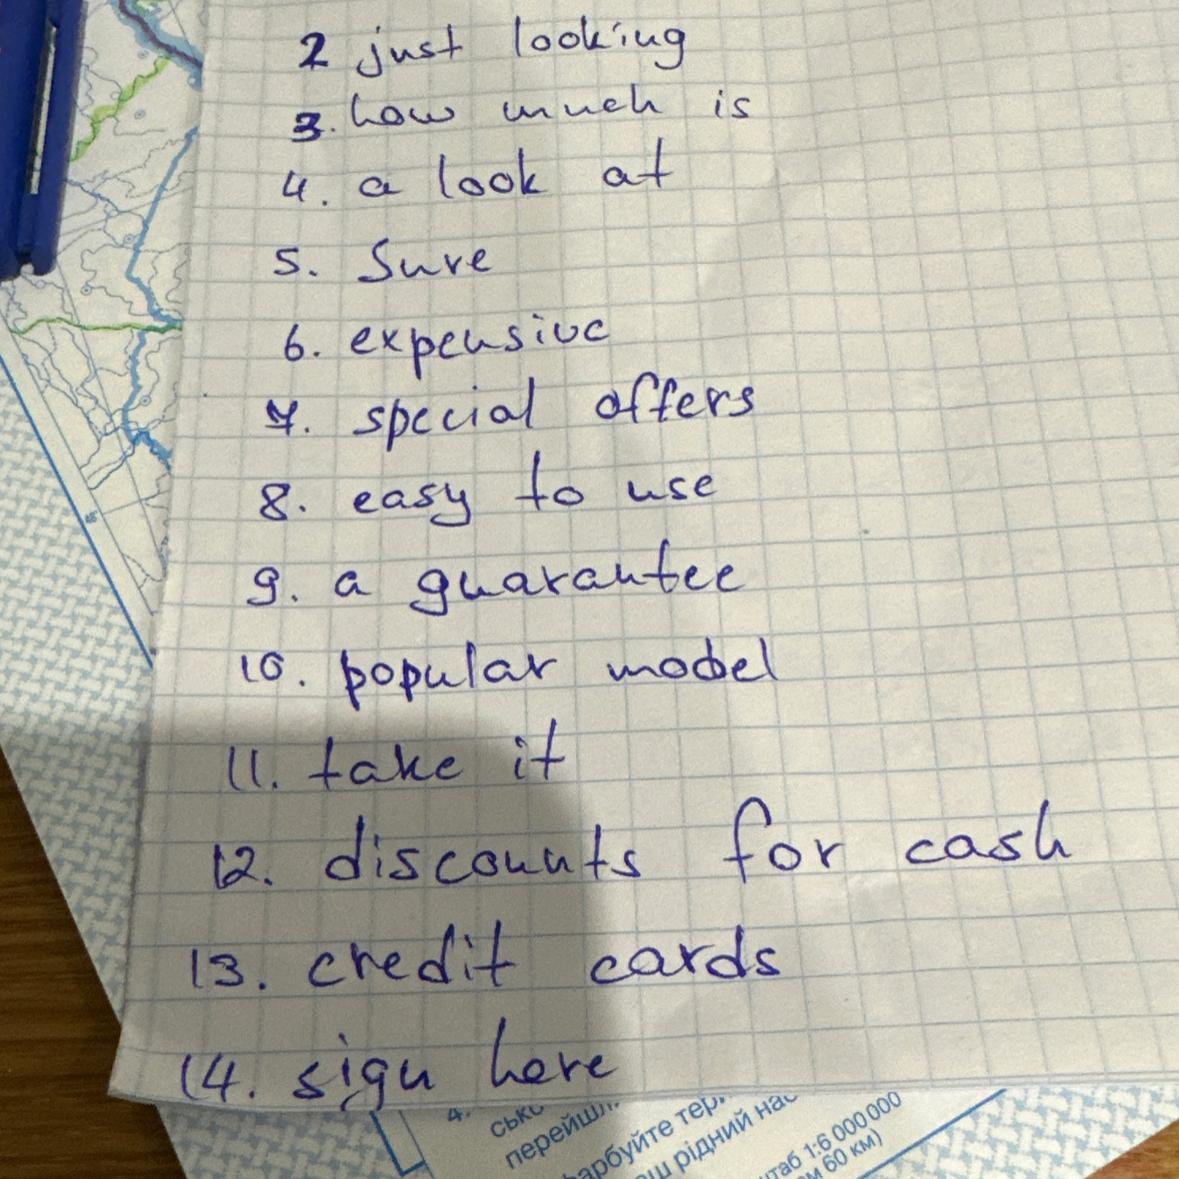 2 just looking
3. how much is
4. a look at
5. Sure
6. expensive
7. special offers
8. easy to use
9. a guarantee
10. popular model
11. take it
12. discounts for cash
13. credit cards
14. sign here
4.
перейш
арбуйте тер
рідний нас
таб 1:6 000 000
м 60 км)